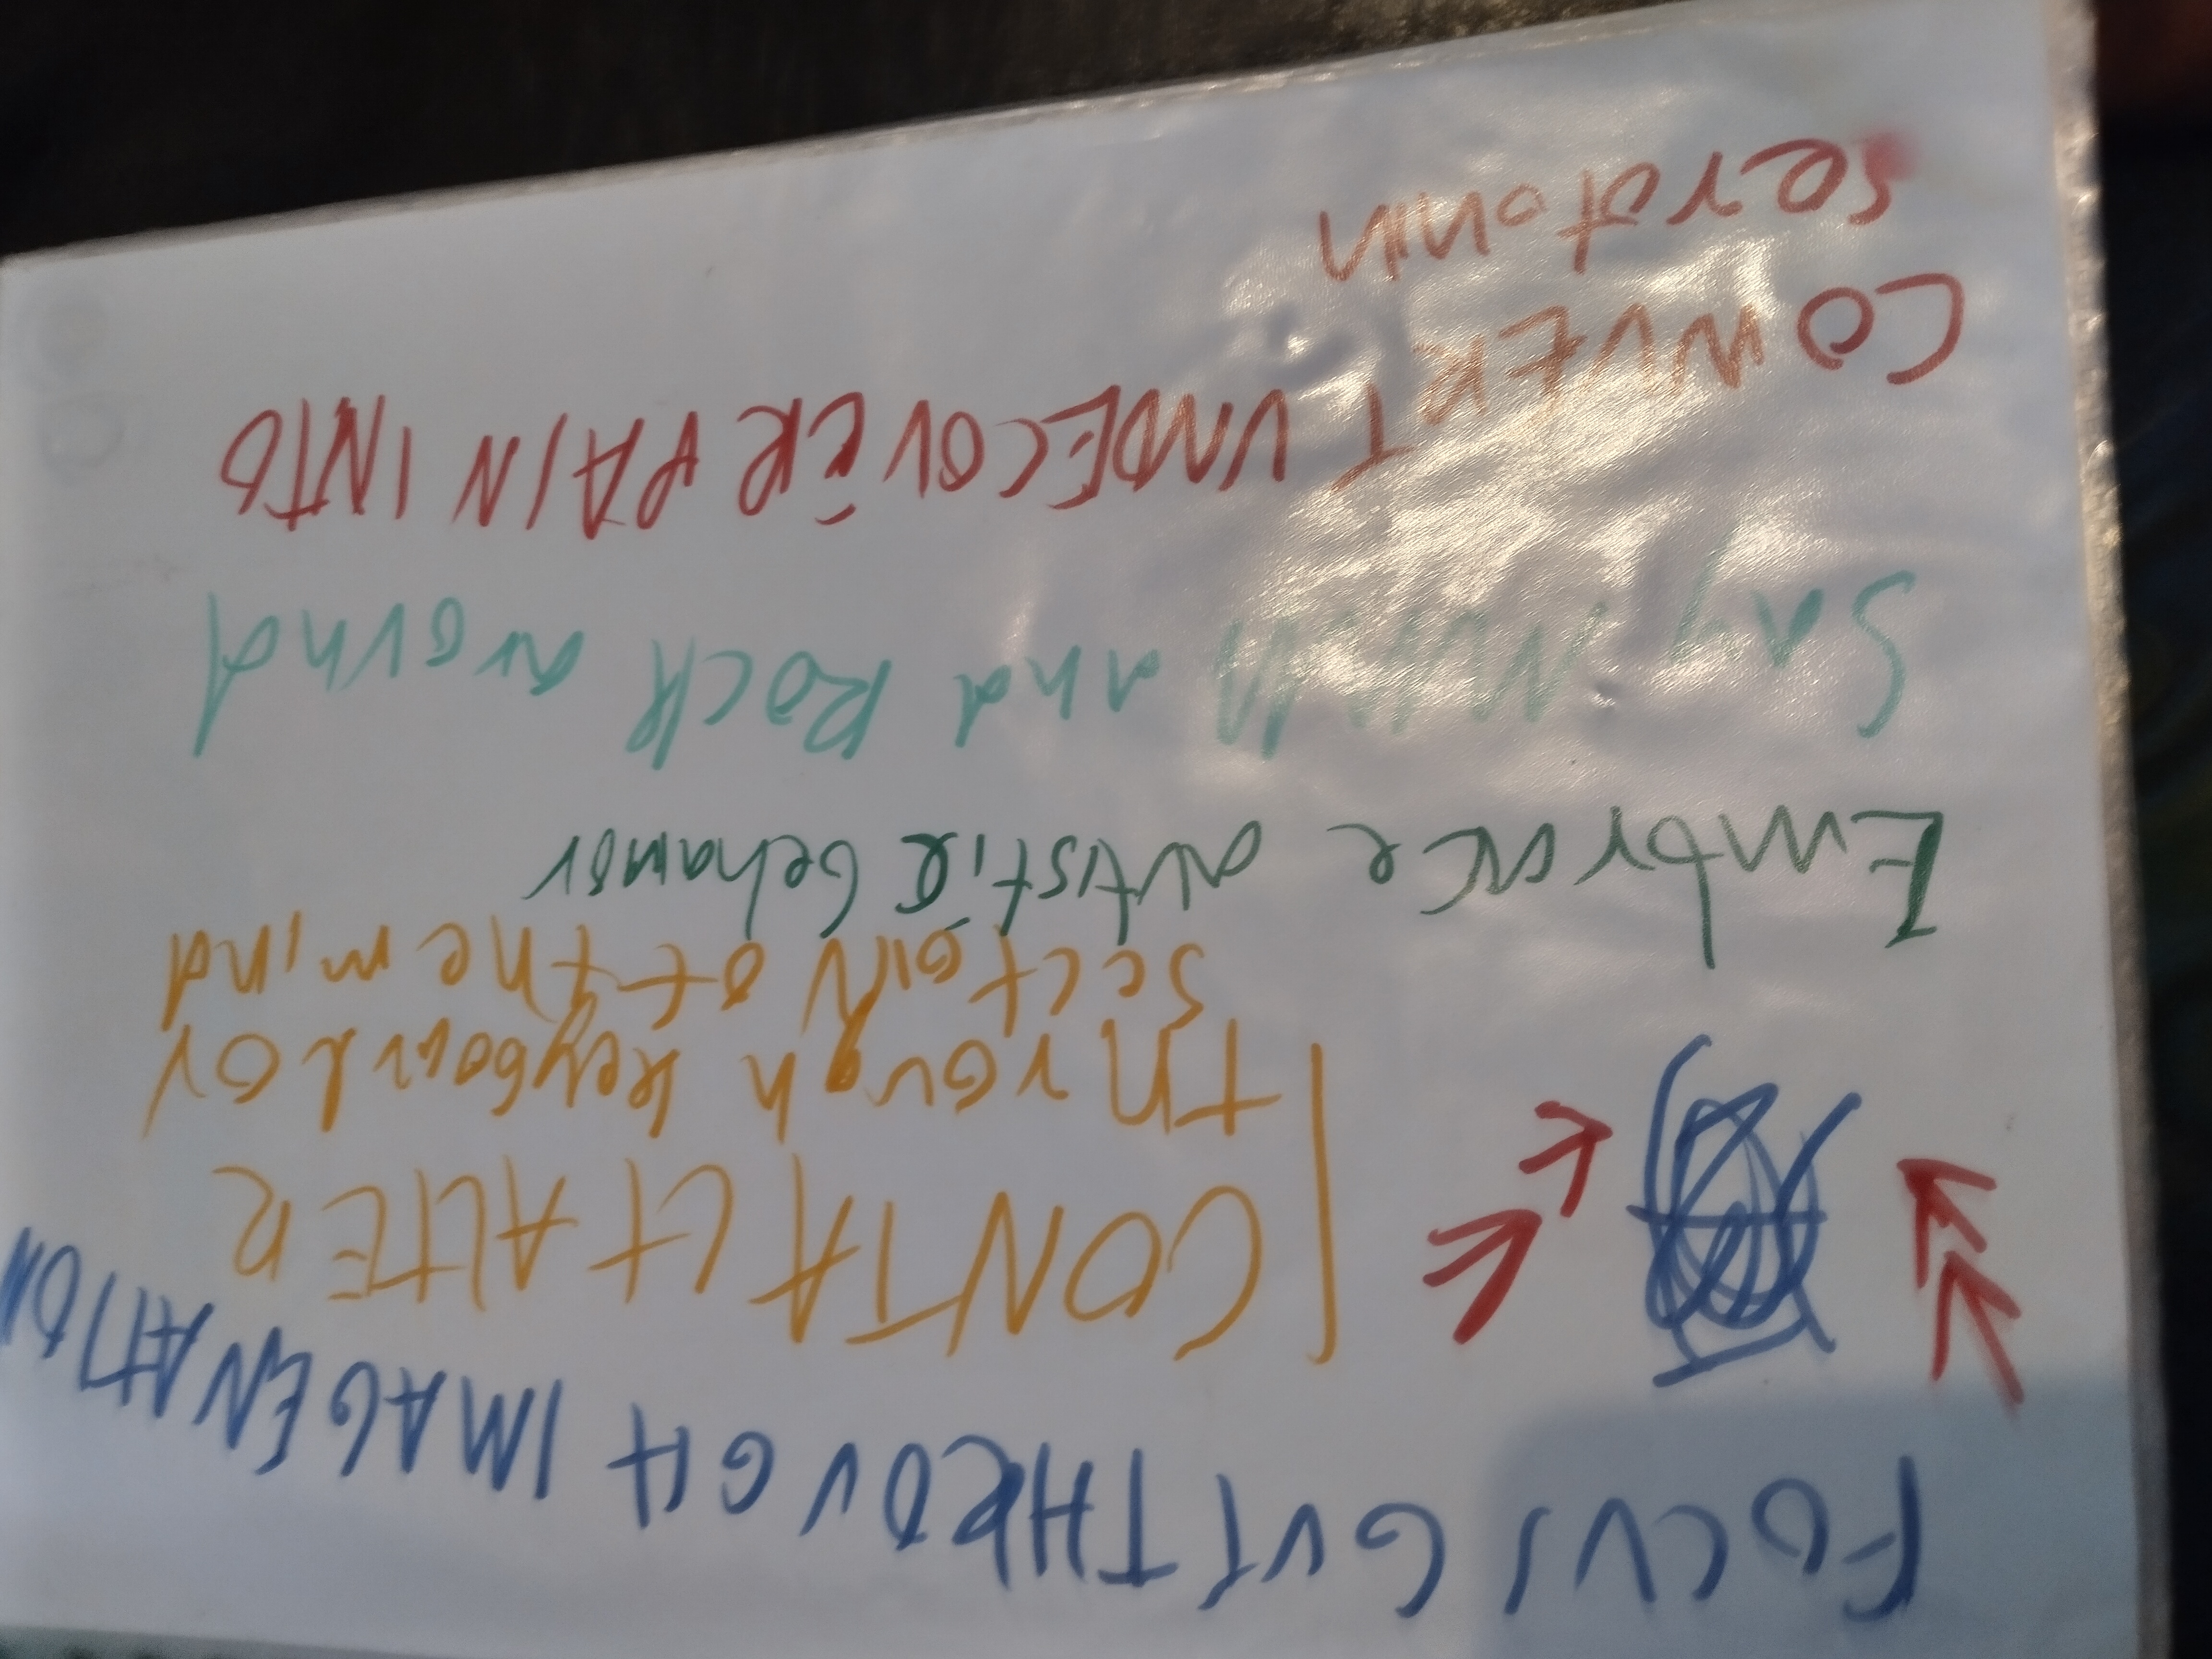 FOCUS GUT THROUGH IMAGENATION
CONTACT ALTER
through keyboard or
section of the mind
Embrace autistic behavior
Say and Rock around
CONVERT UNDECOVER PAIN INTO
serotonin